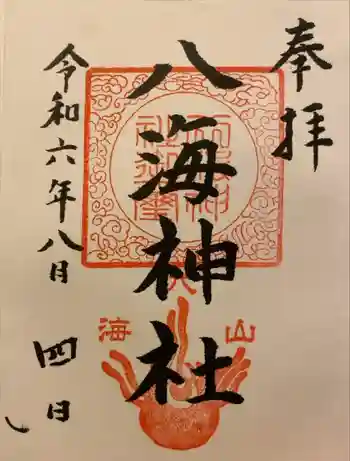 奉拝
八海神社
令和六年八月四日
八
山
海